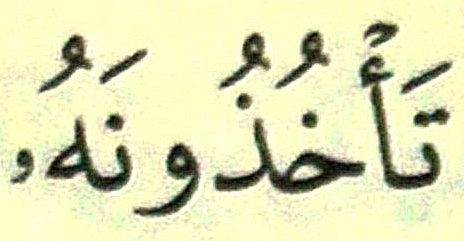 تَأْخُذُونَهُۥ